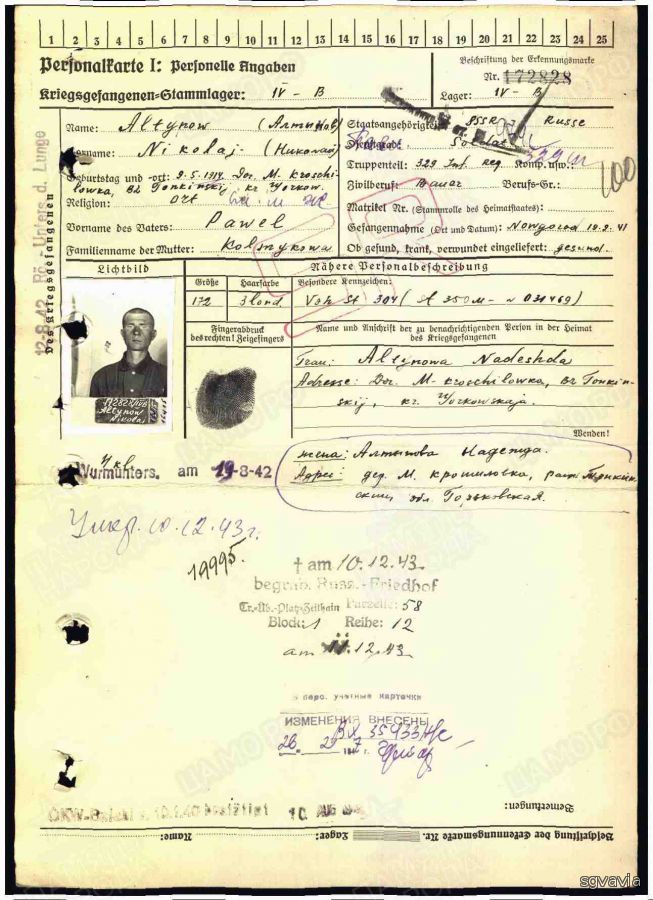 1 2 3 4 5 6 7 8 9 10 11 12 13 14 15 16 17 18 19 20 21 22 23 24 25
Personalkarte I: Personelle Angaben
Kriegsgefangenen-Stammlager: IV - B
Beschriftung der Erkennungsmarke
Nr. 172828
Lager: IV - B
Des Kriegsgefangenen
12-8-42 Rö.-Unters d. Lunge
Name: Altynow (Алтынов)
Vorname: Nikolaj (Николай)
Geburtstag und -ort: 9.5.1914 Dor. M. Kroschi-
lowka, Bz Tonkinskij, kr. Gorkow.
Religion: ort
Vorname des Vaters: Pawel
Familienname der Mutter: Kolmykowa
Staatsangehörigkeit: SSSR Russe
Dienstgrad: Soldat
Truppenteil: 329 Inf. Reg. Komp. usw.:
Zivilberuf: Bauer Berufs-Gr.:
Matrikel Nr. (Stammrolle des Heimatstaates):
Gefangennahme (Ort und Datum): Nowgorod 18.8.41
Ob gesund, krank, verwundet eingeliefert: gesund.
100
Lichtbild
Nähere Personalbeschreibung
Größe Haarfarbe Besondere Kennzeichen:
172 Blond. 304 (
Fingerabdruck
des rechten! Zeigefingers
Name und Anschrift der zu benachrichtigenden Person in der Heimat
des Kriegsgefangenen
Frau: Altynowa Nadeshda
Adresse: Dor. M-Kroschilowka, Bz Tonkin-
skij, kr. Gorkowskaja.
172828 IVB
Altynow
Nikolaj
Wenden!
жена: Алтынова Надежда.
Адрес: дер. М. Крошиловка,
обл. Горьковская.
Wurmunters. am 19-8-42
Умер. 10.12.43г.
19995.
† am 10.12.43
begrab. Russ.-Friedhof
Tr.-Üb.-Platz-Zeithain Parzelle: 58
Block: 1 Reihe: 12
am 11.12.43
В перс. учетные карточки
ИЗМЕНЕНИЯ ВНЕСЕНЫ
Bemerkungen:
Beschriftung der Erkennungsmarke Nr. Lager: Name:
sgvavia